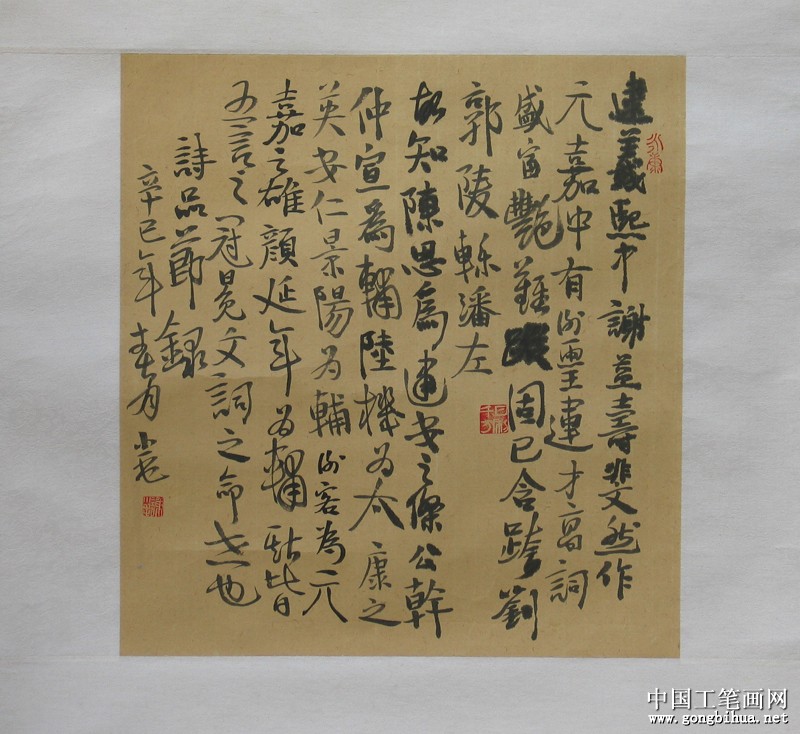 逮義熙中謝益壽斐然作
元嘉中有謝靈運才高詞
盛富艷難蹤固已含跨劉
郭陵轢潘左
故知陳思為建安之傑公幹
仲宣為輔陸機為太康之
英安仁景陽为輔謝客為元
嘉之雄顏延年为輔斯皆
五言之冠冕文詞之命世也
詩品節錄
辛巳年春月
中国工笔画网
www.gongbihua.net